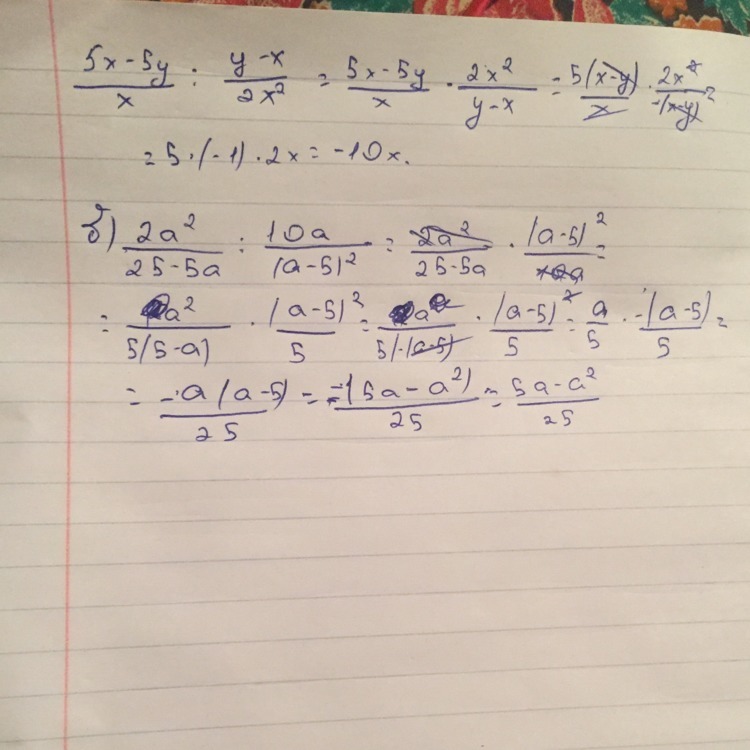 (5x-5y)/x : (y-x)/(2x²) = (5x-5y)/x · (2x²)/(y-x) = (5(x-y))/x · (2x²)/(-(x-y)) =
= 5 · (-1) · 2x = -10x.
б) (2a²)/(25-5a) : (10a)/((a-5)²) = (2a²)/(25-5a) · ((a-5)²)/(10a) =
= (a²)/(5(5-a)) · ((a-5)²)/5 = (a)/(5(-(a-5))) · ((a-5)²)/5 = a/5 · (-(a-5))/5 =
= (-a(a-5))/25 = (-(5a-a²))/25 = (5a-a²)/25